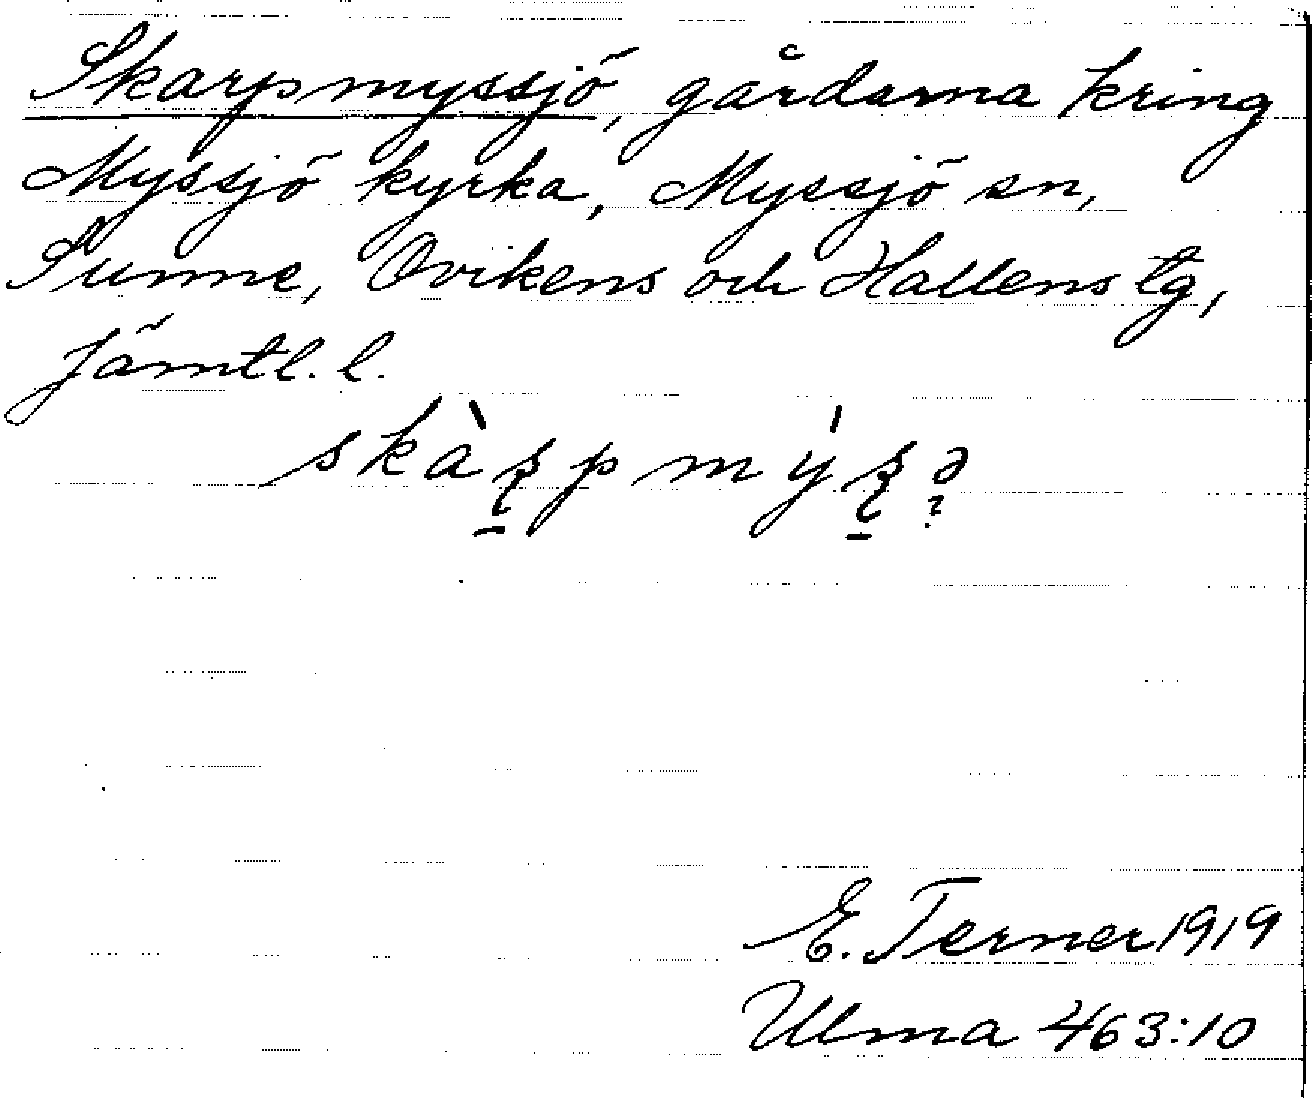 Skarpmyssjö, gårdarna kring
Myssjö kyrka, Myssjö sn,
Sunne, Ovikens och Hallens tg,
Jämtl. l.
E. Terner 1919
Ulma 463:10